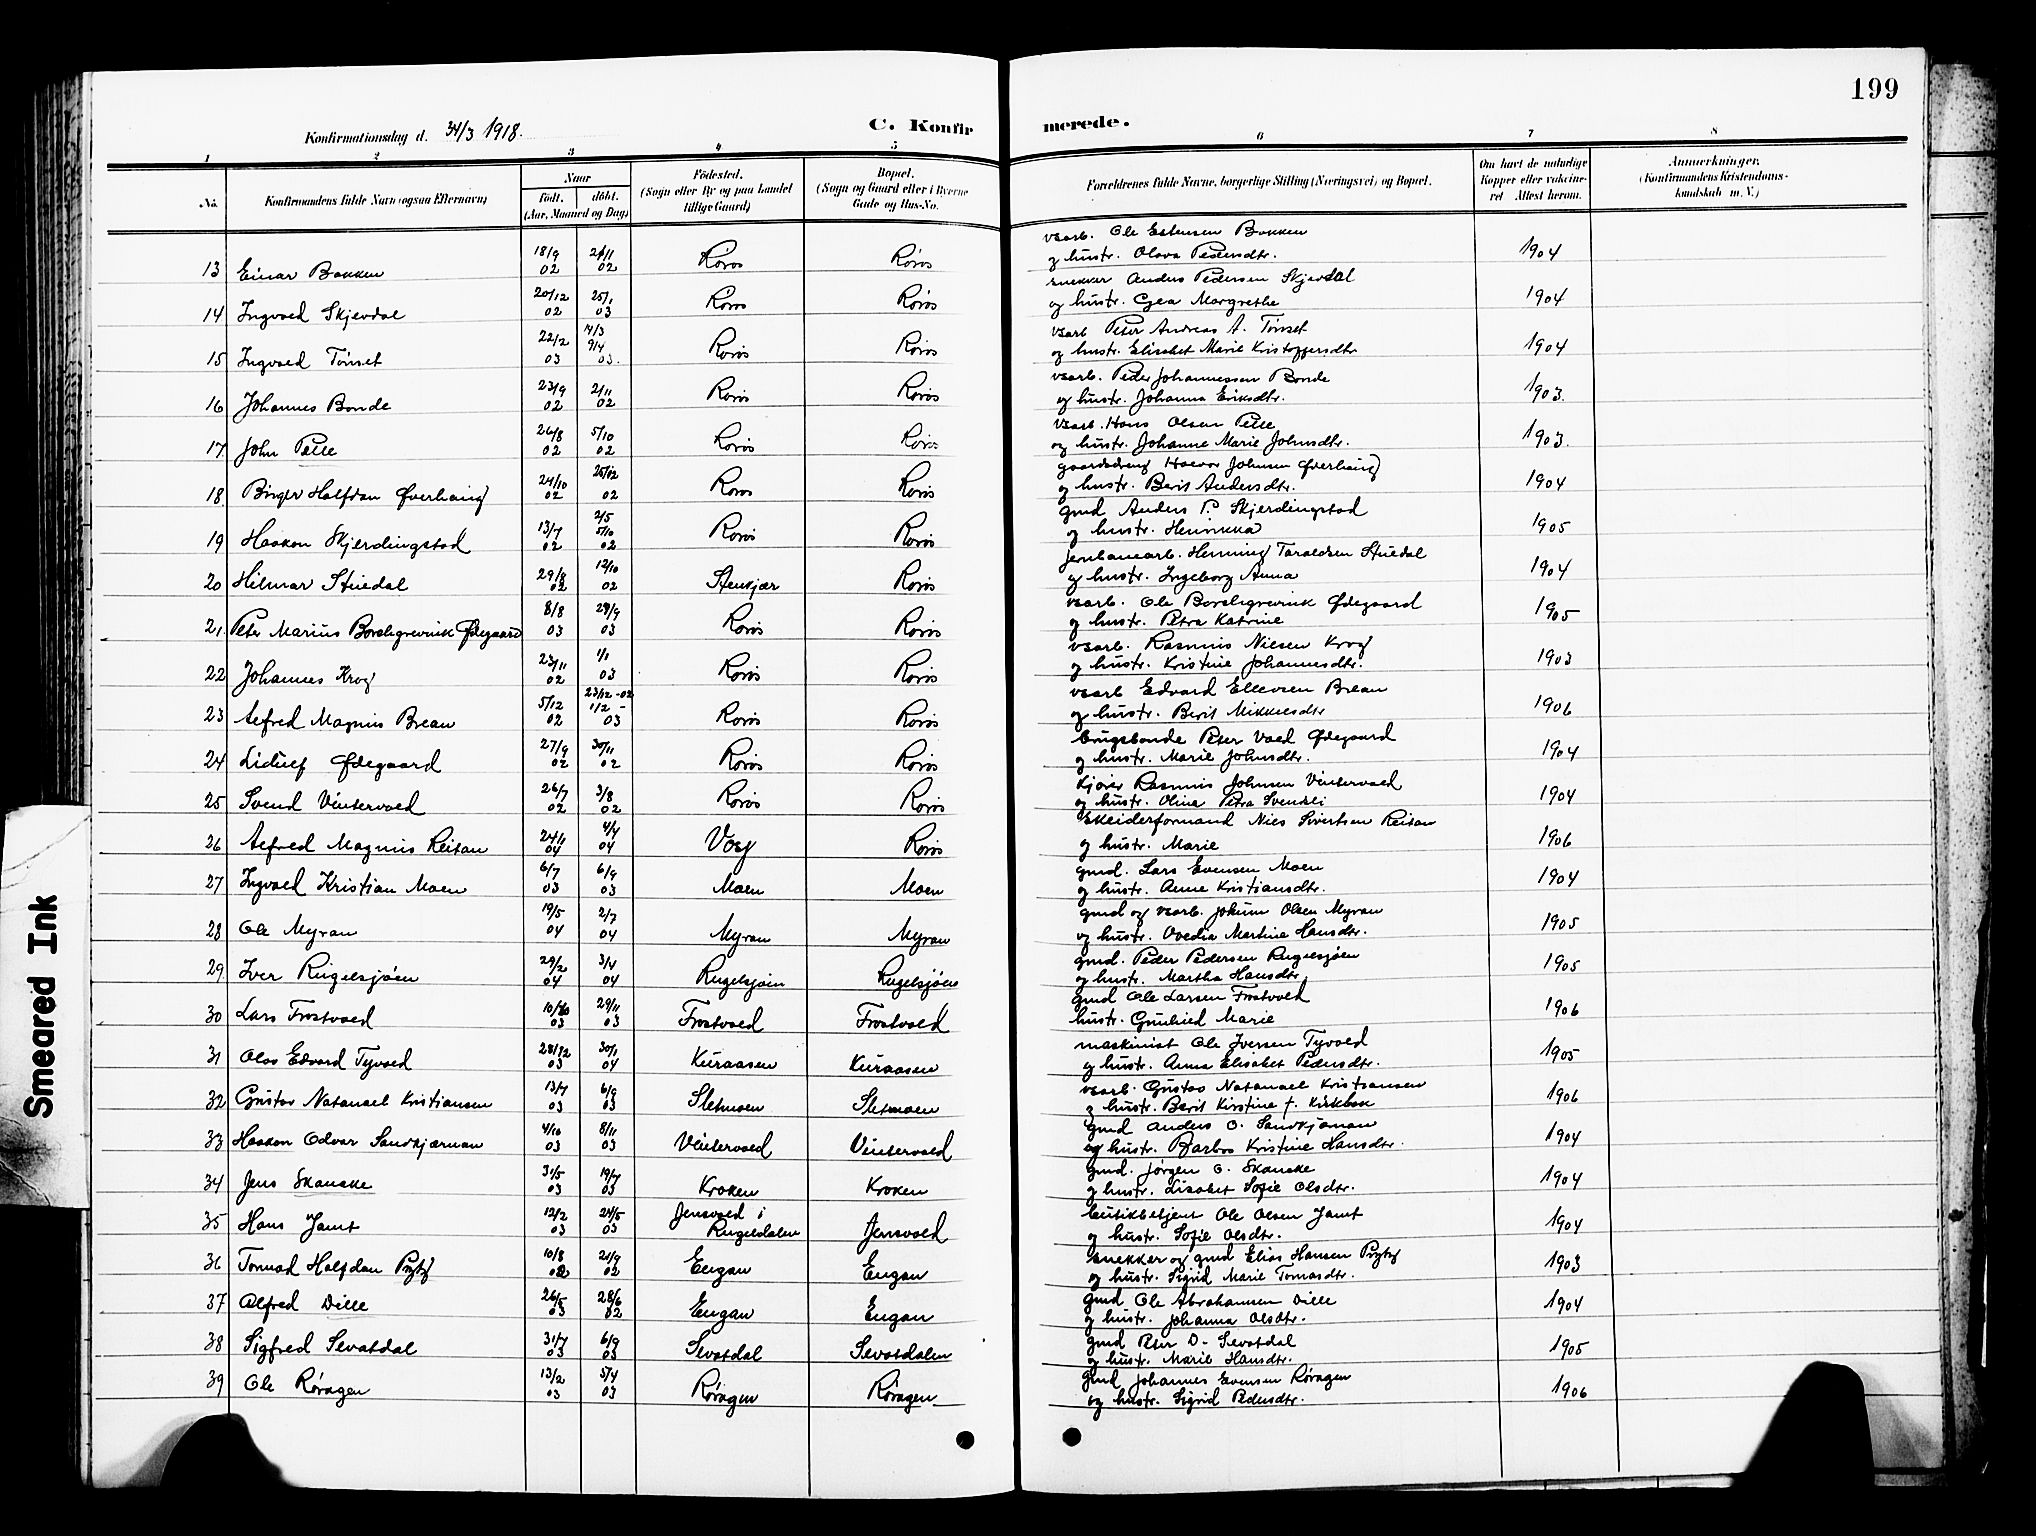 199
Konfirmationsdag d. 31/3 1918.
C. Konfirmerede.
1 2 3 4 5 6 7 8
No. Konfirmandens fulde Navn (ogsaa Efternavn) Naar født. døbt. (Aar, Maaned og Dag) Fødested. (Sogn eller By og paa Landet tillige Gaard) Bopæl. (Sogn og Gaard eller i Byerne Gade og Hus-No. Forældrenes fulde Navne, borgerlige Stilling (Næringsvei) og Bopæl. Om havt de naturlige Kopper eller vaccineret Attest herom. Anmærkninger. (Konfirmandens Kristendomskundskab m. V.)
13 Einar Bakken 18/9 02 21/11 02 Røros Røros varb. Ole Estensen Bakken og hustr. Olava Pedersdtr. 1904
14 Ingvald Skjevdal 20/12 02 25/1 03 Røros Røros snekker Anders Pedersen Skjevdal og hustr. Gea Margrethe 1904
15 Ingvald Tønset 22/2 03 4/3 9/4 03. Røros Røros varb Peter Andreas A. Tønset og hustr. Elisabet Marie Kristoffersdtr 1904
16 Johannes Bonde 23/9 02 2/11 02 Røros Røros varb. Peder Johannessen Bonde og hustr. Johanna Eriksdtr. 1903.
17 John Pelle 26/8 02 5/10 02 Røros Røros varb. Hans Olsen Pelle og hustr. Johanne Marie Johnsdtr. 1903.
18 Birger Halfdan Øverhaug 24/10 02 25/12 02 Røros Røros gaardsdreng Halvor Johnsen Øverhaug og hustr. Berit Andersdtr. 1904
19 Haakon Skjerdingstad 13/7 02 2/5 5/10 02 Røros Røros gmd Anders P. Skjerdingstad og hustr. Henrikka 1905
20 Hilmar Stuedal 29/8 02 12/10 02 Stenkjær Røros jernbanearb. Henning Taraldsen Stuedal og hustr. Ingeborg Anna 1904
21 Peter Marius Borchgrevink Ødegaard 8/8 03 29/9 03 Røros Røros varb. Ole Borchgrevink Ødegaard og hustr. Petra Katrine 1905
22 Johannes Krog 23/11 02 1/1 03 Røros Røros varb. Rasmus Nilsen Krog og hustr. Kristine Johannesdtr. 1903
23 Alfred Magnus Breau 5/12 02 23/12-02 1/2 - 03 Røros Røros varb Edvard Ellevsen Breau og hustr. Berit Mikkelsdtr 1906
24 Lidulf Ødegaard 27/9 02 30/11 02 Røros Røros brugsbonde Peter Vald Ødegaard og hustr. Marie Johnsdtr. 1904
25 Svend Vintervold 26/7 02 3/8 02 Røros Røros Kjører Rasmus Johnsen Vintervold og hustr. Oline Petra Svendsdtr 1904
26 Alfred Magnus Reitan 24/1 04 4/4 04 Røros Skeiderformand Nils Sivertsen Reitan og hustr. Marie 1906
27 Ingvald Kristian Moen 6/7 03 6/9 03 Moen Moen gmd. Lars Evensen Moen og hustr. Anne Kristiansdtr. 1904
28 Ole Myran 19/5 04 2/7 04 Myran Myran gmd og varb. Jokum Olsen Myran og hustr. Ovedia Martine Hansdtr. 1905
29 Iver Rugelsjøen 29/2 04 3/4 04 Rugelsjøen Rugelsjøen gmd. Peder Pedersen Rugelsjøen og hustr. Martha Hansdtr 1905
30 Lars Frostvold 10/10 03 29/11 03 Frostvold Frostvold gmd Ole Larsen Frostvold hustr. Gunhild Marie 1906
31 Olav Edvard Tyvold 28/12 03 30/1 04 Kuraasen Kuraasen maskinist Ole Iversen Tyvold og hustr. Anna Elisabet Pedersdtr. 1905
32 Gustav Natanael Kristiansen 13/7 03 6/9 03 Sletmoen Sletmoen varb. Gustav Natanael Kristiansen og hustr. Berit Kirstine f. Kirkbak 1906
33 Haakon Odvar Sandkjærnan 4/10 03 8/11 03 Vintervold Vintervold gmd Anders O. Sandkjernan og hustr. Barbro Kristine Hansdtr. 1904
34 Jens Skancke 31/5 03 19/7 03 Kroken Kroken gmd. Jørgen O. Skancke og hustr. Lisabet Sofie Olsdtr. 1904
35 Hans Jamt 12/2 03 24/5 03 Jensvold i Rugeldalen Jensvold butikbetjent Ole Olsen Jamt og hustr. Sofie Olsdtr. 1904
36 Tomas Halfdan Prytz 10/8 02 21/9 02 Engan Engan snekker og gmd Elias Hansen Prytz og hustr. Sigrid Marie Tomasdtr. 1903
37 Alfred Dille 26/5 03 28/6 02 Engan Engan gmd Ole Abrahamsen Dille og hustr. Johanna Olsdtr. 1904
38 Sigfred Sevatdal 31/7 03 6/9 03 Sevatdal Sevatdalen gmd Peter D. Sevatdal og hustr. Marie Hansdtr. 1905
39 Ole Røragen 13/2 03 5/4 03 Røragen Røragen gmd Johannes Evensen Røragen og hustr. Sigrid Pedersdtr. 1906
Smeared Ink